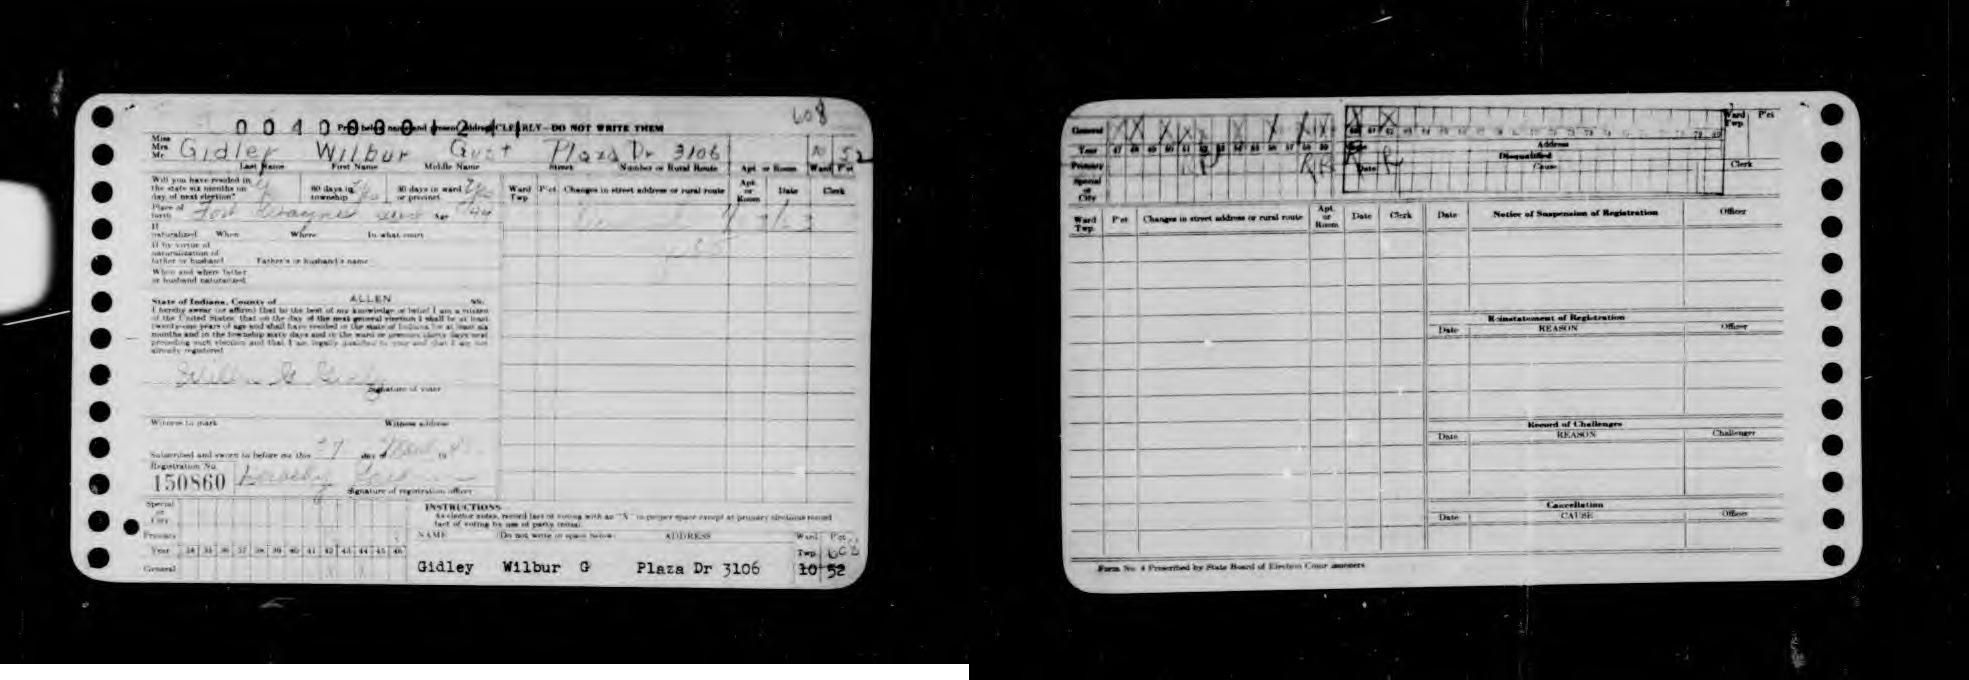 608
0040000 1211
Print below name and present address CLEARLY—DO NOT WRITE THEM
Miss
Mrs
Mr
Gidley Wilbur Gust Plaza Dr 3106 10 52
Last Name First Name Middle Name Street Number or Rural Route Apt or Room Ward P'ct
Will you have resided in
the state six months on
day of next election?
60 days in
township
30 days in ward
or precinct Yes
Ward
Twp
P'ct
Changes in street address or rural route
Apt
or
Room
Date
Clerk
Place of
birth Fort Wayne Age
If
naturalized When Where In what court
If by virtue of
naturalization of
father or husband Father's or husband's name
When and where father
or husband naturalized
State of Indiana, County of ALLEN ss.
I hereby swear (or affirm) that to the best of my knowledge or belief I am a citizen
of the United States, that on the day of the next general election I shall be at least
twenty-one years of age and shall have resided in the state of Indiana for at least six
months and in the township sixty days and in the ward or precinct thirty days next
preceding such election and that I am legally qualified to vote and that I am not
already registered
Wilbur G Gidley
Signature of voter
Witness to mark Witness address
Subscribed and sworn to before me this 27 day of 19
Registration No.
150860
Dorothy
Signature of registration officer
Special
or
City
Primary
Year 34 35 36 37 38 39 40 41 42 43 44 45 46
General
INSTRUCTIONS
As elector votes, record fact of voting with an "X" in proper space except at primary elections record
fact of voting by use of party initial.
NAME Do not write in space below ADDRESS Ward P'ct
Twp 608
Gidley Wilbur G Plaza Dr 3106 10 52
General X X X X X X X X X X
Year 47 48 49 50 51 52 53 54 55 56 57 58 59
Primary R R R R
Special
or
City
X X
60 61 62 63
79 80
Ward
Twp
P'ct
Address
Disqualified
Date Cause Clerk
Ward
Twp.
P'ct
Changes in street address or rural route
Apt.
or
Room
Date
Clerk
Date Notice of Suspension of Registration Officer
Reinstatement of Registration
Date REASON Officer
Record of Challenges
Date REASON Challenger
Cancellation
Date CAUSE Officer
Form No. 4 Prescribed by State Board of Election Commissioners